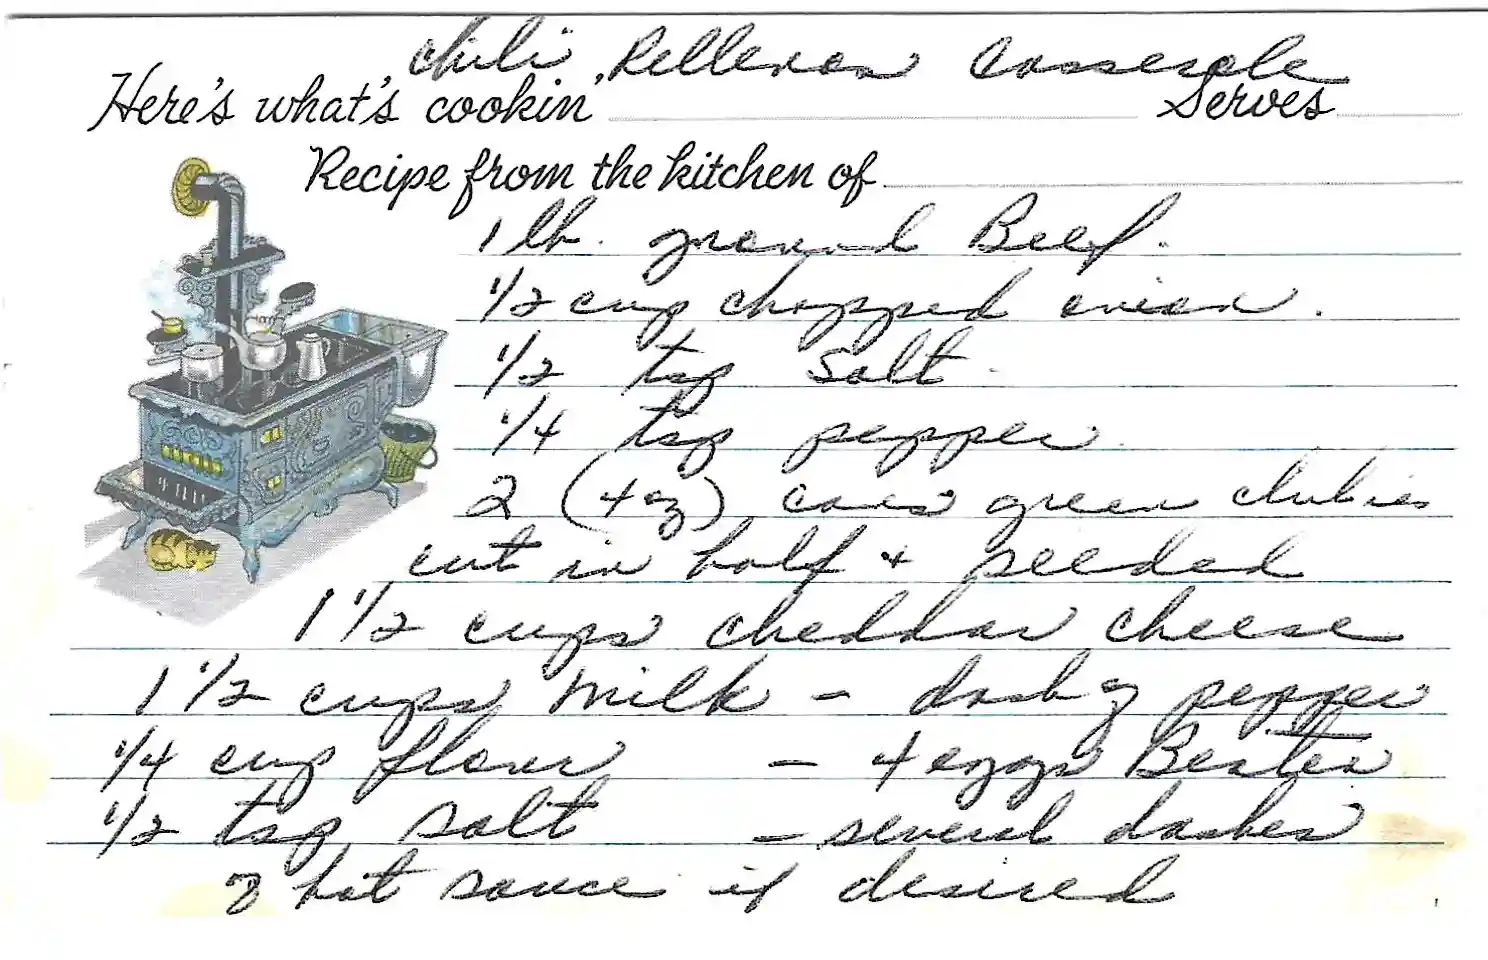 Chili Rellenos Casserole
Here's what's cookin' Serves
Recipe from the kitchen of
1 lb. ground Beef.
1/2 cup chopped onion.
1/2 tsp Salt.
1/4 tsp pepper
2 (4 oz) cans green chilies
cut in half + seeded
1 1/2 cups cheddar cheese
1 1/2 cups milk - dash of pepper
1/4 cup flour - 4 eggs Beaten
1/2 tsp salt - several dashes
of hot sauce if desired